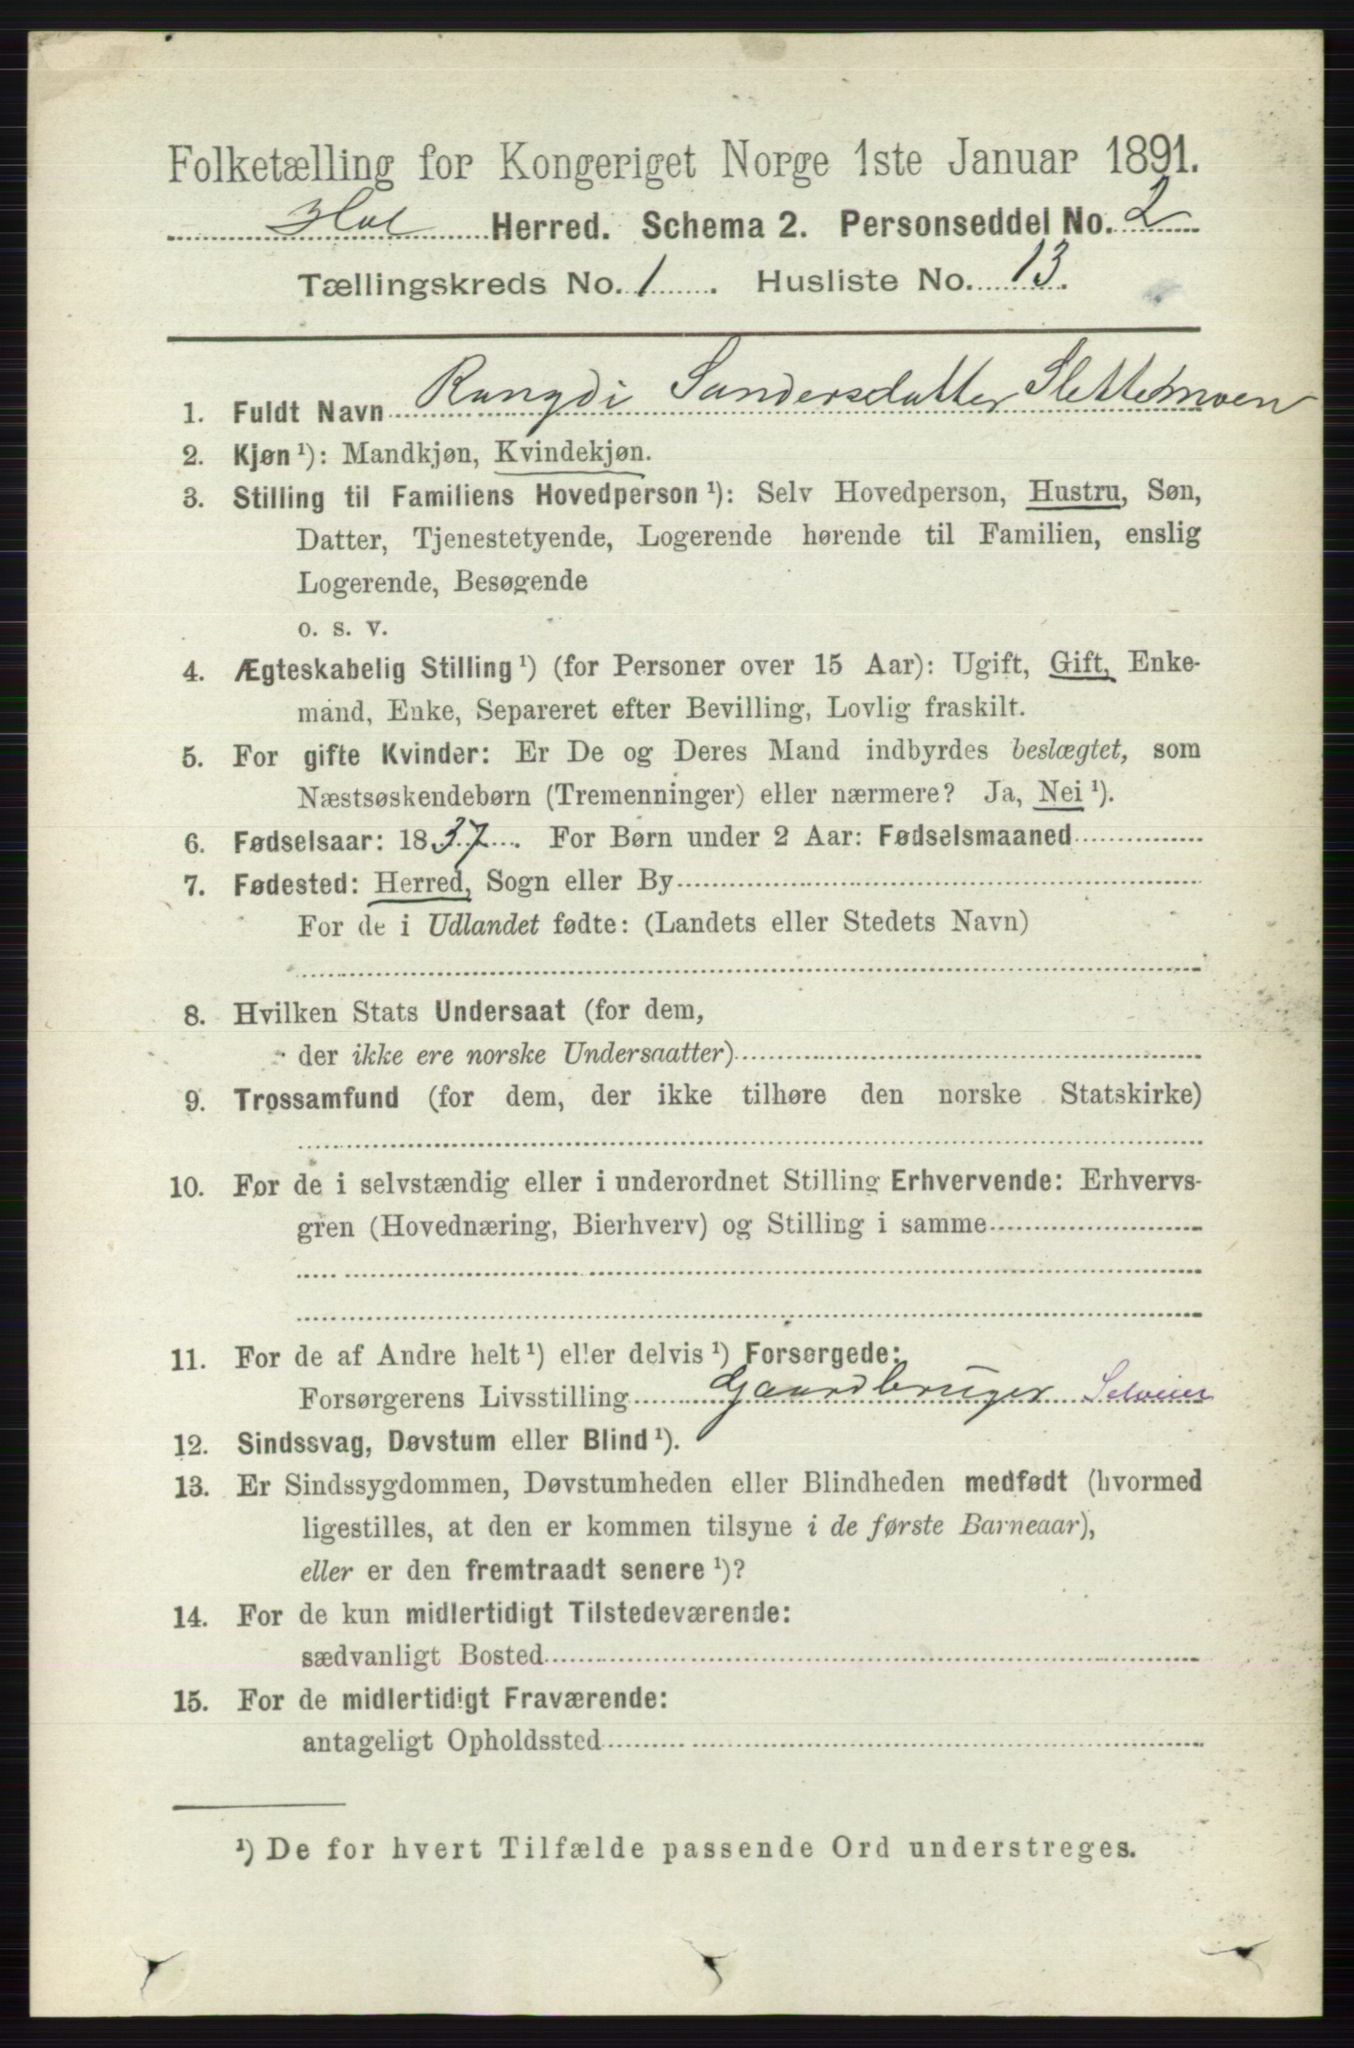 Folketælling for Kongeriget Norge 1ste Januar 1891.
Hol Herred. Schema 2. Personseddel No. 2
Tællingskreds No. 1. Husliste No. 13.
1. Fuldt Navn Rangdi Sandersdatter Slettemoen
2. Kjøn ¹): Mandkjøn, Kvindekjøn.
3. Stilling til Familiens Hovedperson ¹): Selv Hovedperson, Hustru, Søn,
Datter, Tjenestetyende, Logerende hørende til Familien, enslig
Logerende, Besøgende
o. s. v.
4. Ægteskabelig Stilling ¹) (for Personer over 15 Aar): Ugift, Gift, Enke-
mand, Enke, Separeret efter Bevilling, Lovlig fraskilt.
5. For gifte Kvinder: Er De og Deres Mand indbyrdes beslægtet, som
Næstsøskendebørn (Tremenninger) eller nærmere? Ja, Nei ¹).
6. Fødselsaar: 1837. For Børn under 2 Aar: Fødselsmaaned
7. Fødested: Herred, Sogn eller By
For de i Udlandet fødte: (Landets eller Stedets Navn)
8. Hvilken Stats Undersaat (for dem,
der ikke ere norske Undersaatter)
9. Trossamfund (for dem, der ikke tilhøre den norske Statskirke)
10. For de i selvstændig eller i underordnet Stilling Erhvervende: Erhvervs-
gren (Hovednæring, Bierhverv) og Stilling i samme
11. For de af Andre helt ¹) eller delvis ¹) Forsørgede:
Forsørgerens Livsstilling Gaardbruger Selveier
12. Sindssvag, Døvstum eller Blind ¹).
13. Er Sindssygdommen, Døvstumheden eller Blindheden medfødt (hvormed
ligestilles, at den er kommen tilsyne i de første Barneaar),
eller er den fremtraadt senere ¹)?
14. For de kun midlertidigt Tilstedeværende:
sædvanligt Bosted
15. For de midlertidigt Fraværende:
antageligt Opholdssted
¹) De for hvert Tilfælde passende Ord understreges.